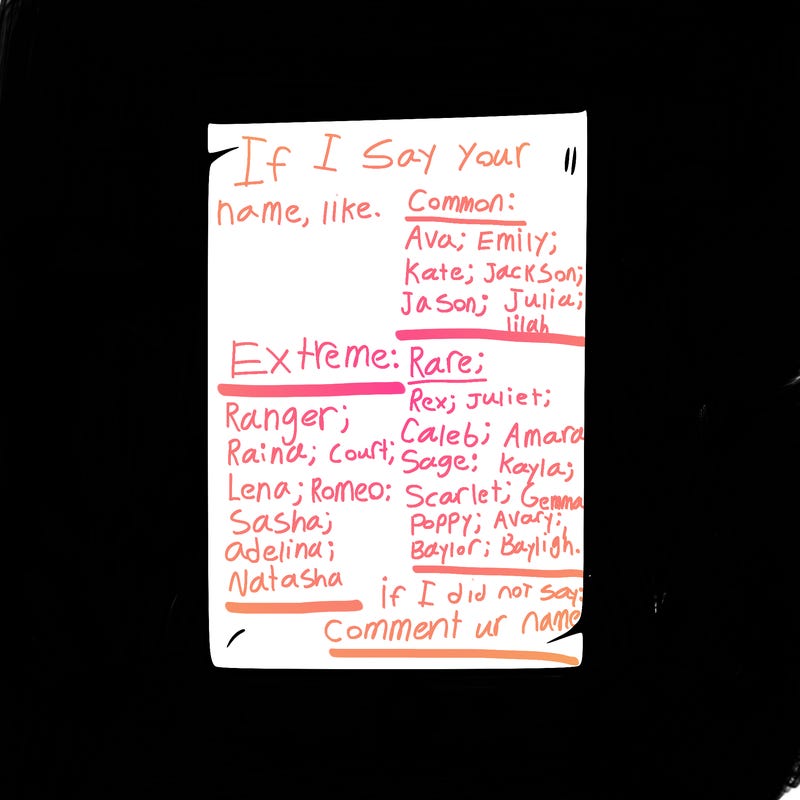 If I Say Your
name, like.
Common:
Ava; Emily;
Kate; Jackson;
Jason; Julia;
lilah
Extreme:
Ranger;
Raina; Court;
Lena; Romeo:
Sasha;
adelina;
Natasha
Rare;
Rex; Juliet;
Caleb; Amara
Sage: Kayla;
Scarlet; Gemma
Poppy; Avary;
Baylor; Bayligh.
if I did not say:
Comment ur name